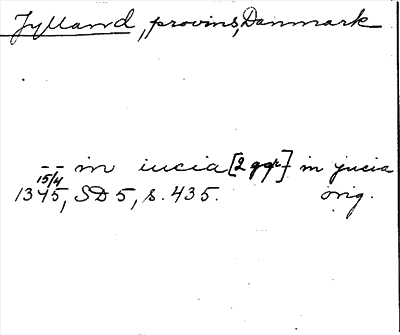 Jylland, provins, Danmark
-- in iucia [2 ggr] in jucia
15/4
1345, SD 5, s. 435. orig.